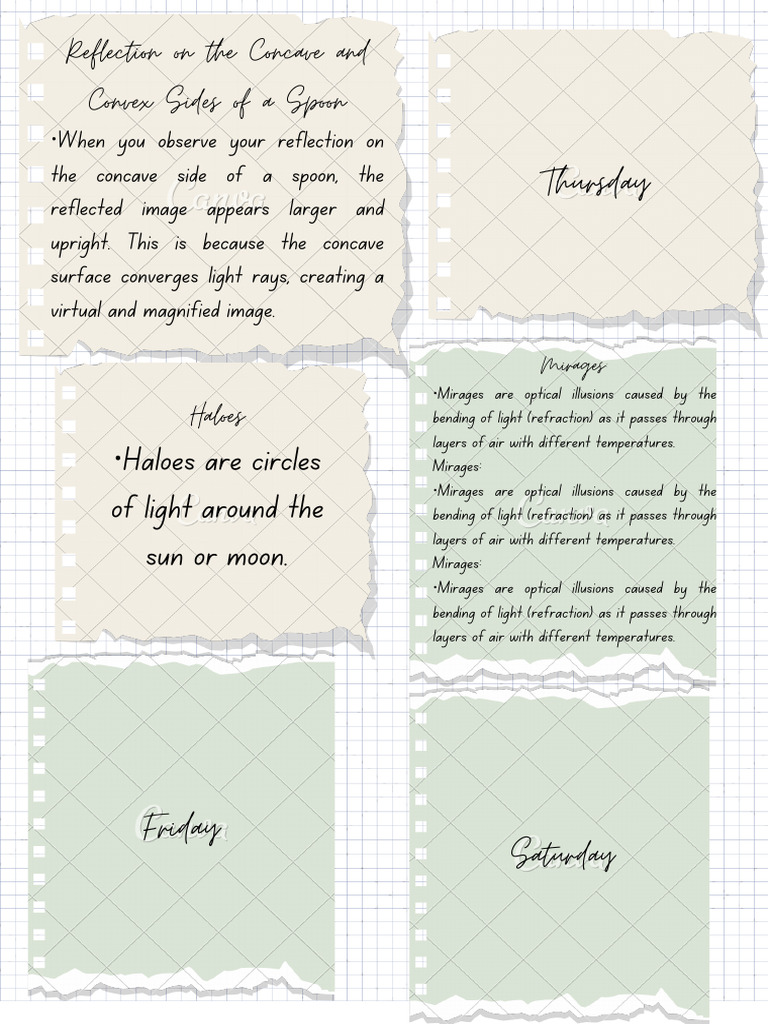 Reflection on the Concave and
Convex Sides of a Spoon
•When you observe your reflection on
the concave side of a spoon, the
reflected image appears larger and
upright. This is because the concave
surface converges light rays, creating a
virtual and magnified image.
Thursday
Haloes
•Haloes are circles
of light around the
sun or moon.
Mirages
•Mirages are optical illusions caused by the
bending of light (refraction) as it passes through
layers of air with different temperatures.
Mirages:
•Mirages are optical illusions caused by the
bending of light (refraction) as it passes through
layers of air with different temperatures.
Mirages:
•Mirages are optical illusions caused by the
bending of light (refraction) as it passes through
layers of air with different temperatures.
Friday
Saturday
Canva
Canva
Canva
Canva
Canva
Canva